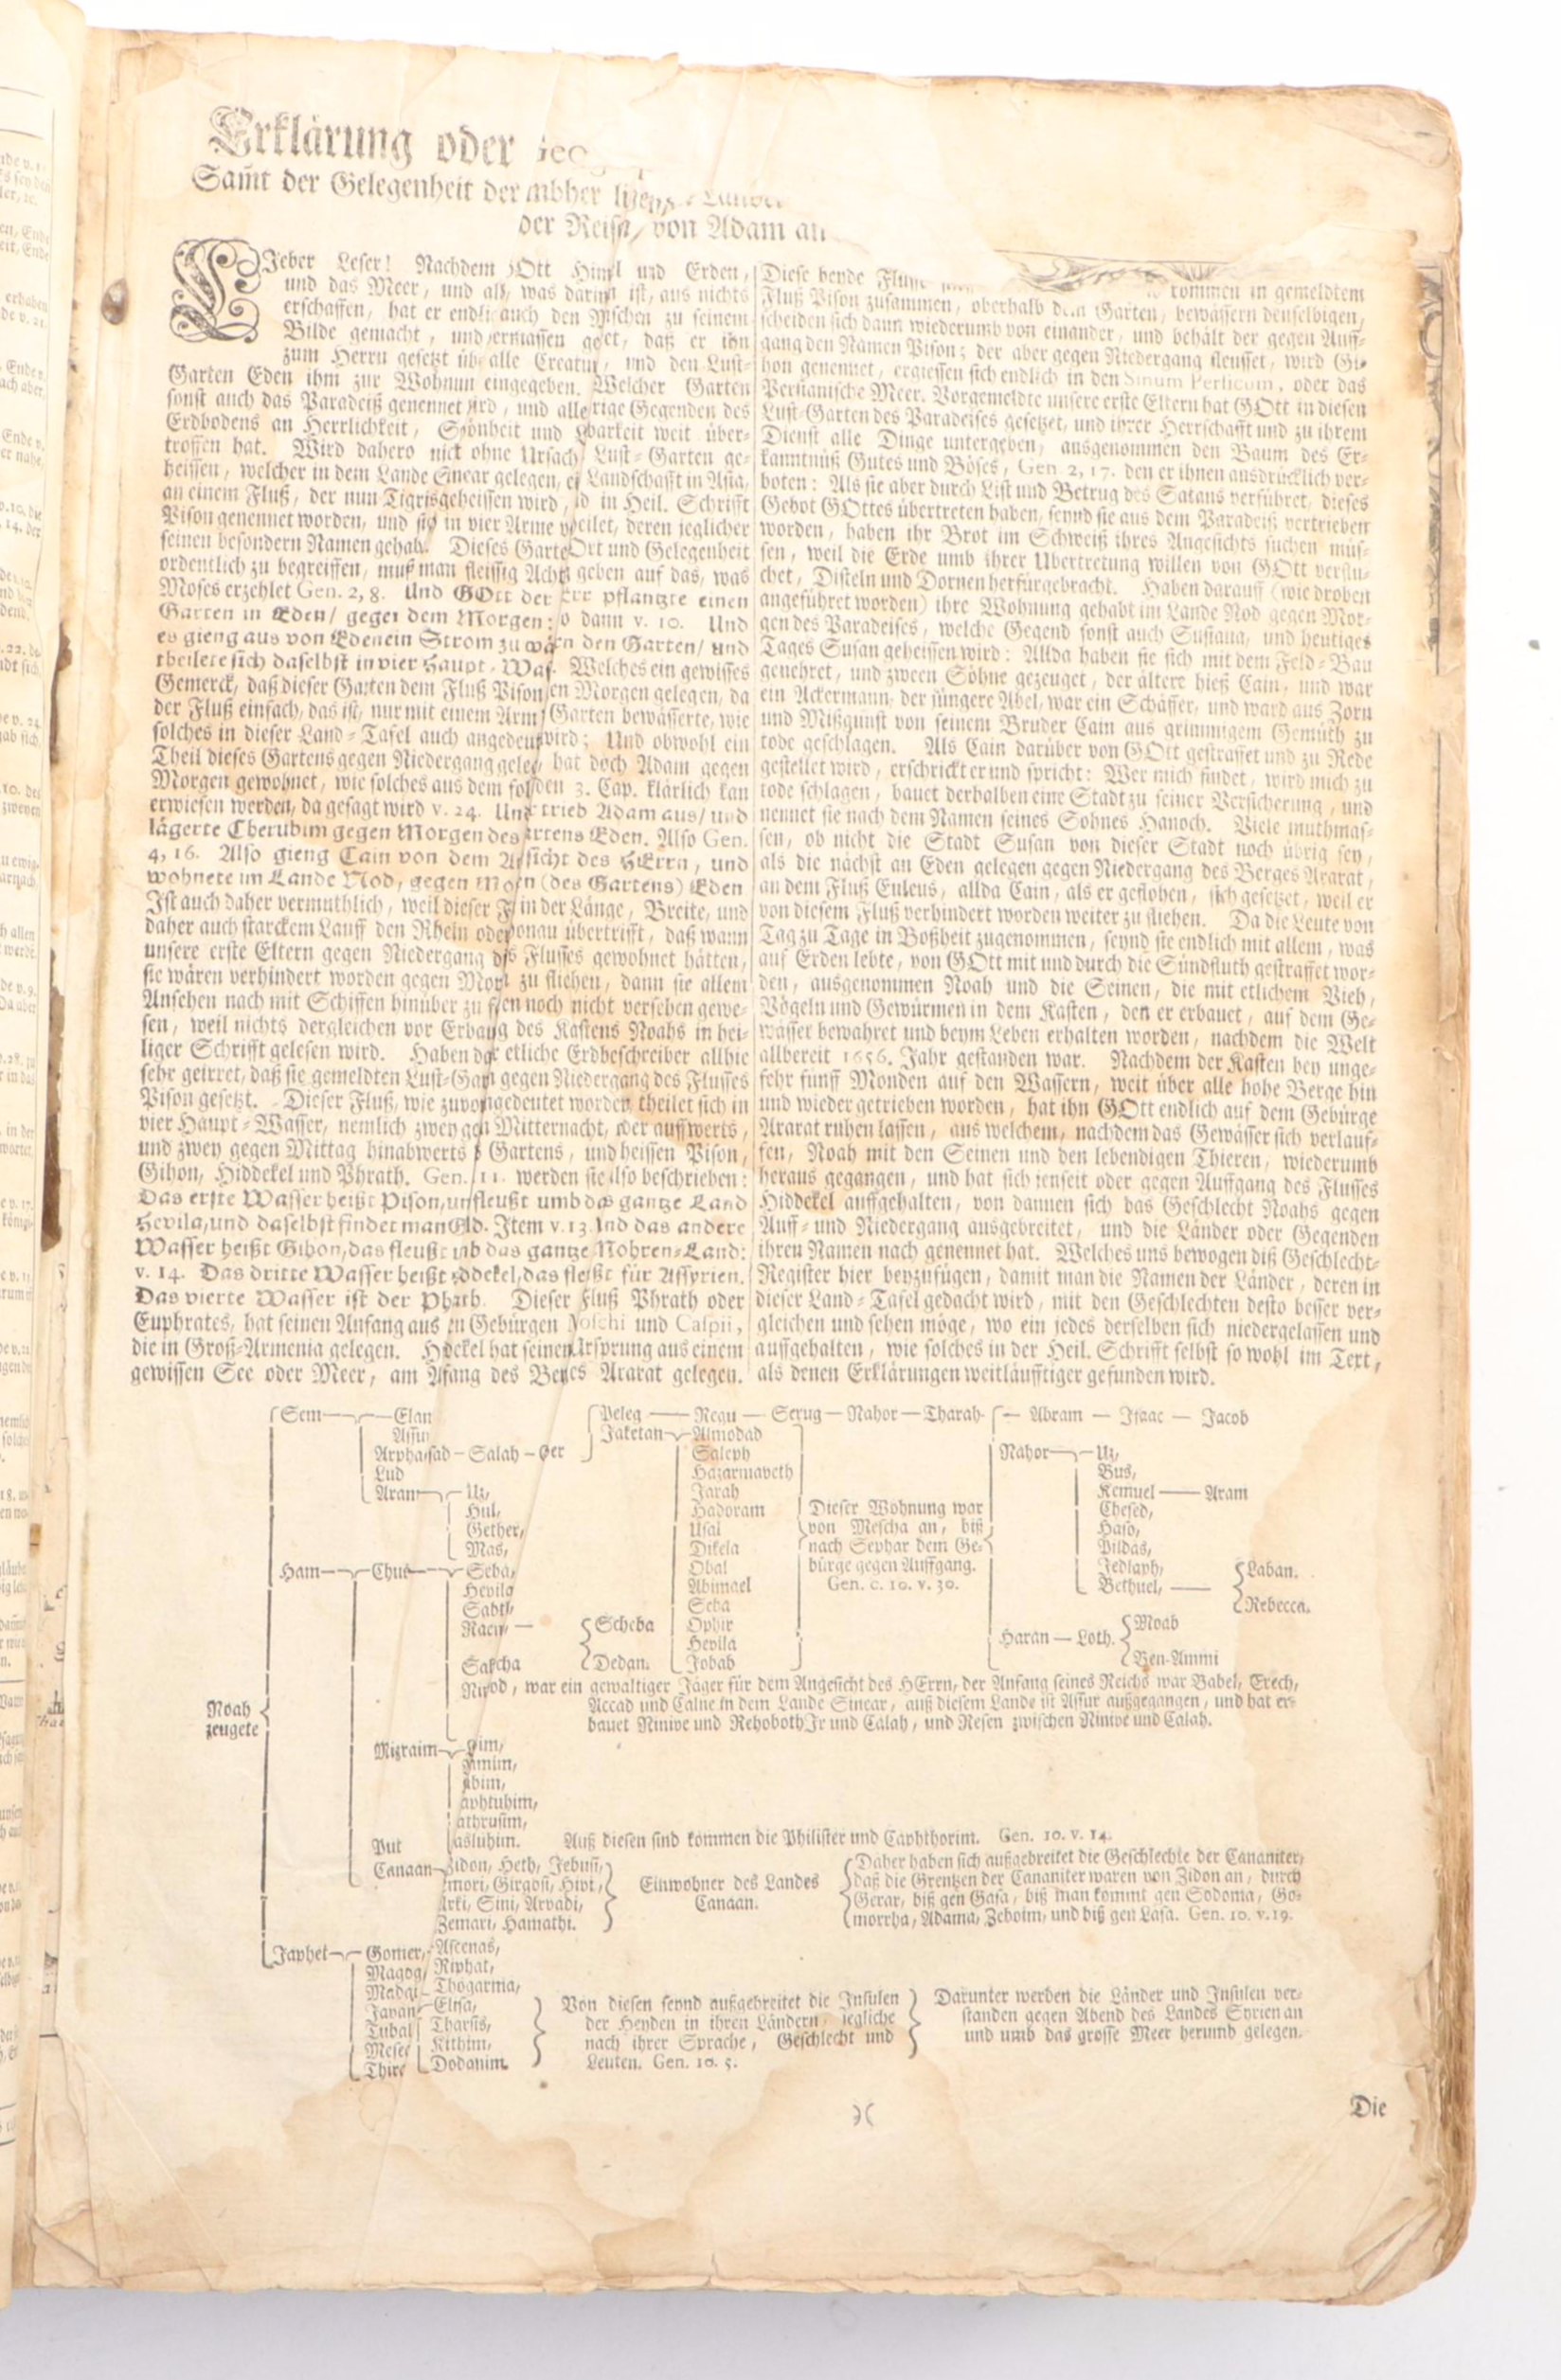 Erklärung oder
Sam̃t der Gelegenheit der
der Reise/ von Adam an
LIeber Leser! Nachdem GOtt Himel und Erden,
und das Meer, und all, was darinn ist, aus nichts
erschaffen, hat er endlich auch den Menschen zu seinem
Bilde gemacht, und dermassen geehret, daß er ihn
zum Herrn gesetzt über alle Creatur, und den Lust-
Garten Eden ihm zur Wohnung eingegeben. Welcher Garten
sonst auch das Paradeiß genennet wird, und alle Gegenden des
Erdbodens an Herrlichkeit, Schönheit und weit über-
troffen hat. Wird dahero nicht ohne Ursach Lust-Garten ge-
heissen, welcher in dem Lande Sinear gelegen, Landschafft in Asia,
an einem Fluß, der nun Tigris geheissen wird, und in Heil. Schrifft
Pison genennet worden, und sich in vier Arme theilet, deren jeglicher
seinen besondern Namen gehabt. Dieses Gartens Ort und Gelegenheit
ordentlich zu begreiffen, muß man fleissig Achtung geben auf das, was
Moses erzehlet Gen. 2, 8. Und GOtt der HErr pflantzte einen
Garten in Eden/ gegen dem Morgen: so dann v. 10. Und
es gieng aus von Eden ein Strom zu wässern den Garten/ und
theilete sich daselbst in vier Haupt-Wasser. Welches ein gewisses
Gemerck, daß dieser Garten dem Fluß Pison gegen Morgen gelegen, da
der Fluß einfach, das ist, nur mit einem Arm Garten bewässerte, wie
solches in dieser Land-Tafel auch angedeutet wird; Und obwohl ein
Theil dieses Gartens gegen Niedergang gelegen, hat doch Adam gegen
Morgen gewohnet, wie solches aus dem folgenden 3. Cap. klärlich kan
erwiesen werden, da gesagt wird v. 24. Und trieb Adam aus/ und
lägerte Cherubim gegen Morgen des Gartens Eden. Also Gen.
4, 16. Also gieng Cain von dem Angesicht des HErrn, und
wohnete im Lande Nod, gegen Morgen (des Gartens) Eden
Ist auch daher vermuthlich, weil dieser Fluß in der Länge, Breite, und
daher auch starckem Lauff den Rhein oder Donau übertrifft, daß wann
unsere erste Eltern gegen Niedergang des Flusses gewohnet hätten,
sie wären verhindert worden gegen Morgen zu fliehen, dann sie allem
Ansehen nach mit Schiffen hinüber zu noch nicht versehen gewe-
sen, weil nichts dergleichen vor Erbauung des Kastens Noahs in hei-
liger Schrifft gelesen wird. Haben etliche Erdbeschreiber allhie
sehr geirret, daß sie gemeldten Lust-Garten gegen Niedergang des Flusses
Pison gesetzt. Dieser Fluß, wie zuvor angedeutet worden, theilet sich in
vier Haupt-Wasser, nemlich zwey gegen Mitternacht, oder auffwerts,
und zwey gegen Mittag hinabwerts des Gartens, und heissen Pison,
Gihon, Hiddekel und Phrath. Gen. 2, 11. werden sie also beschrieben:
Das erste Wasser heißt Pison, und fleußt umb das gantze Land
Hevila, und daselbst findet man Gold. Item v. 13. Und das andere
Wasser heißt Gihon, das fleußt umb das gantze Mohren-Land:
v. 14. Das dritte Wasser heißt Hiddekel, das fleußt für Assyrien.
Das vierte Wasser ist der Phrath. Dieser Fluß Phrath oder
Euphrates, hat seinen Anfang aus den Gebürgen Moschi und Caspii,
die in Groß-Armenia gelegen. Hiddekel hat seinen Ursprung aus einem
gewissen See oder Meer, am Anfang des Berges Ararat gelegen.
Diese beyde Flüsse kommen in gemeldtem
Fluß Pison zusammen, oberhalb dem Garten, bewässern denselbigen,
scheiden sich dann wiederumb von einander, und behält der gegen Auff-
gang den Namen Pison; der aber gegen Niedergang fleusset, wird Gi-
hon genennet, ergiessen sich endlich in den Sinum Persicum, oder das
Persianische Meer. Vorgemeldte unsere erste Eltern hat GOtt in diesen
Lust-Garten des Paradeises gesetzet, und ihrer Herrschafft und zu ihrem
Dienst alle Dinge untergeben, ausgenommen den Baum des Er-
kanntnüß Gutes und Böses, Gen. 2, 17. den er ihnen ausdrücklich ver-
boten: Als sie aber durch List und Betrug des Satans verführet, dieses
Gebot GOttes übertreten haben, seynd sie aus dem Paradeiß vertrieben
worden, haben ihr Brot im Schweiß ihres Angesichts suchen müs-
sen, weil die Erde umb ihrer Ubertretung willen von GOtt verflu-
chet, Disteln und Dornen herfürgebracht. Haben darauff (wie droben
angeführet worden) ihre Wohnung gehabt im Lande Nod gegen Mor-
gen des Paradeises, welche Gegend sonst auch Susiana, und heutiges
Tages Susan geheissen wird: Allda haben sie sich mit dem Feld-Bau
genehret, und zween Söhne gezeuget, der ältere hieß Cain, und war
ein Ackermann, der jüngere Abel, war ein Schäffer, und ward aus Zorn
und Mißgunst von seinem Bruder Cain aus grimmigem Gemüth zu
tode geschlagen. Als Cain darüber von GOtt gestraffet und zu Rede
gestellet wird, erschrickt er und spricht: Wer mich findet, wird mich zu
tode schlagen, bauet derhalben eine Stadt zu seiner Versicherung, und
nennet sie nach dem Namen seines Sohnes Hanoch. Viele muthmas-
sen, ob nicht die Stadt Susan von dieser Stadt noch übrig sey,
als die nächst an Eden gelegen gegen Niedergang des Berges Ararat,
an dem Fluß Euleus, allda Cain, als er geflohen, sich gesetzet, weil er
von diesem Fluß verhindert worden weiter zu fliehen. Da die Leute von
Tag zu Tage in Boßheit zugenommen, seynd sie endlich mit allem, was
auf Erden lebte, von GOtt mit und durch die Sündfluth gestraffet wor-
den, ausgenommen Noah und die Seinen, die mit etlichem Vieh,
Vögeln und Gewürmen in dem Kasten, den er erbauet, auf dem Ge-
wässer bewahret und beym Leben erhalten worden, nachdem die Welt
allbereit 1656. Jahr gestanden war. Nachdem der Kasten bey unge-
fehr fünff Monden auf den Wassern, weit über alle hohe Berge hin
und wieder getrieben worden, hat ihn GOtt endlich auf dem Gebürge
Ararat ruhen lassen, aus welchem, nachdem das Gewässer sich verlauf-
fen, Noah mit den Seinen und den lebendigen Thieren, wiederumb
heraus gegangen, und hat sich jenseit oder gegen Auffgang des Flusses
Hiddekel auffgehalten, von dannen sich das Geschlecht Noahs gegen
Auff- und Niedergang ausgebreitet, und die Länder oder Gegenden
ihren Namen nach genennet hat. Welches uns bewogen diß Geschlecht-
Register hier beyzufügen, damit man die Namen der Länder, deren in
dieser Land-Tafel gedacht wird, mit den Geschlechten desto besser ver-
gleichen und sehen möge, wo ein jedes derselben sich niedergelassen und
auffgehalten, wie solches in der Heil. Schrifft selbst so wohl im Text,
als denen Erklärungen weitläufftiger gefunden wird.
Noah
zeugete
Sem — Elam
Assur
Arphaxsad — Salah — Eber
Lud
Aram — Uz,
Hul,
Gether,
Mas,
Peleg — Regu — Serug — Nahor — Tharah — Abram — Isaac — Jacob
Jaketan — Almodad
Saleph
Hazarmaveth
Jarah
Hadoram
Usal
Dikela
Obal
Abimael
Seba
Ophir
Hevila
Jobab
Dieser Wohnung war
von Mescha an, biß
nach Sephar dem Ge-
bürge gegen Auffgang.
Gen. c. 10. v. 30.
Nahor — Uz,
Bus,
Kemuel — Aram
Chesed,
Haso,
Pildas,
Jedlaph,
Bethuel, — Laban.
Rebecca.
Haran — Loth. Moab
Ben-Ammi
Ham — Chus — Seba,
Hevila
Sabtha
Raema — Scheba
Dedan.
Sabtcha
Nimrod, war ein gewaltiger Jäger für dem Angesicht des HErrn, der Anfang seines Reichs war Babel, Erech,
Accad und Calne in dem Lande Sinear, auß diesem Lande ist Assur außgegangen, und hat er-
bauet Ninive und Rehoboth Ir und Calah, und Resen zwischen Ninive und Calah.
Mizraim
Put
Auß diesen sind kommen die Philister und Caphthorim. Gen. 10. v. 14.
Canaan — Zidon, Heth, Jebusi,
Emori, Girgosi, Hivi,
Arki, Sini, Arvadi,
Zemari, Hamathi.
Einwohner des Landes
Canaan.
Daher haben sich außgebreitet die Geschlechte der Cananiter,
daß die Grentzen der Cananiter waren von Zidon an, durch
Gerar, biß gen Gasa, biß man kommt gen Sodoma, Go-
morrha, Adama, Zeboim, und biß gen Lasa. Gen. 10. v. 19.
Japhet — Gomer, — Ascenas,
Magog, Riphat,
Madai — Thogarma,
Javan — Elisa,
Tubal Tharsis,
Mesec Kithim,
Thiras Dodanim.
Von diesen seynd außgebreitet die Insulen
der Heyden in ihren Ländern, jegliche
nach ihrer Sprache, Geschlecht und
Leuten. Gen. 10. 5.
Darunter werden die Länder und Insulen ver-
standen gegen Abend des Landes Syrien an
und umb das grosse Meer herumb gelegen.
)(
Die